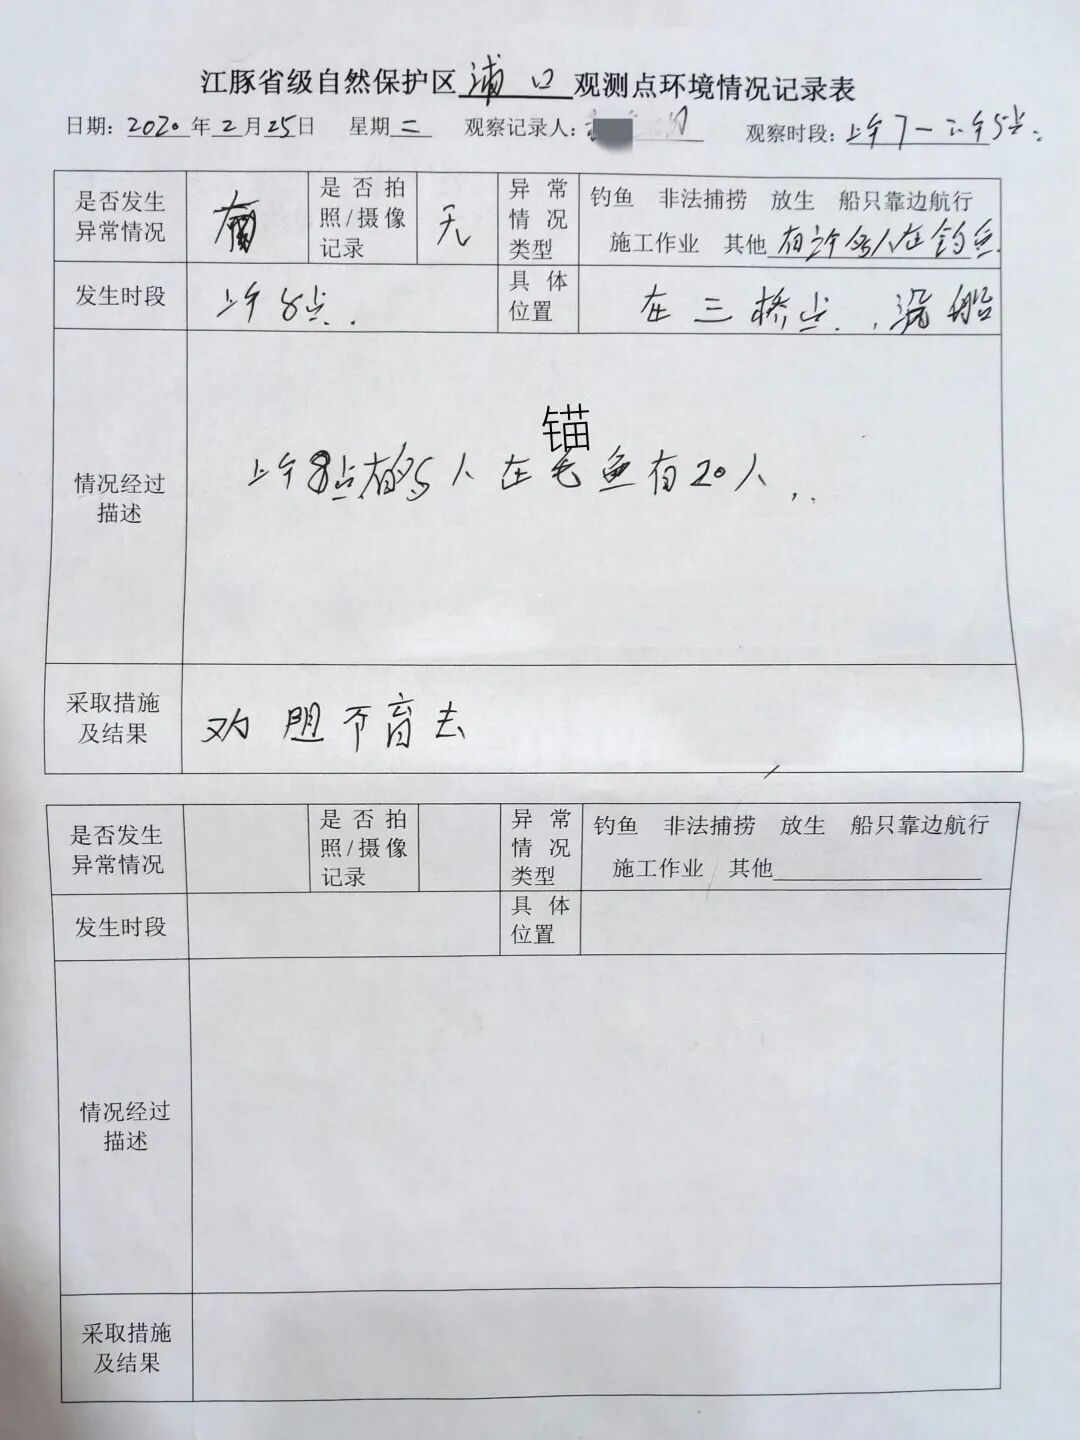 江豚省级自然保护区浦口观测点环境情况记录表
日期：2020年2月25日 星期二 观察记录人： 观察时段：上午7一下午5点.
是否发生异常情况 有 是否拍照/摄像记录 无 异常情况类型 钓鱼 非法捕捞 放生 船只靠边航行
施工作业 其他有许多人在钓鱼.
发生时段 上午8点. 具体位置 在三桥点. 船
锚
情况经过描述 上午8点有 人在毛鱼有20人,.
采取措施及结果 劝阻不肯去
是否发生异常情况 是否拍照/摄像记录 异常情况类型 钓鱼 非法捕捞 放生 船只靠边航行
施工作业 其他
发生时段 具体位置
情况经过描述
采取措施及结果